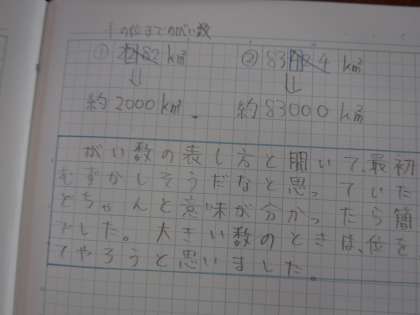 の位までのがい数
① 2182 km²
② 83 4 km²
約2000km²
約83000 km²
がい数の表し方と聞いて、最初
むずかしそうだなと思っていた
どちゃんと意味が分かったら簡
でした。大きい数のときは、位を
てやろうと思いました。